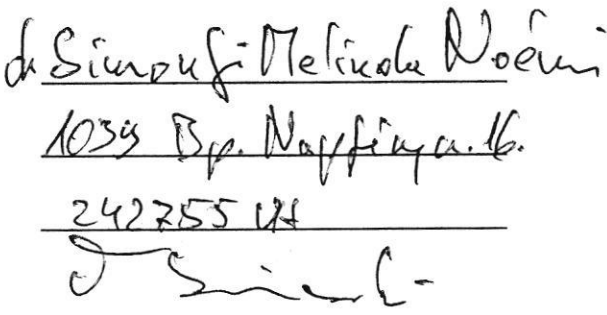 dr Simonfi Melinda Noémi
1039 Bp. Napfény u. 16.
242755 UA